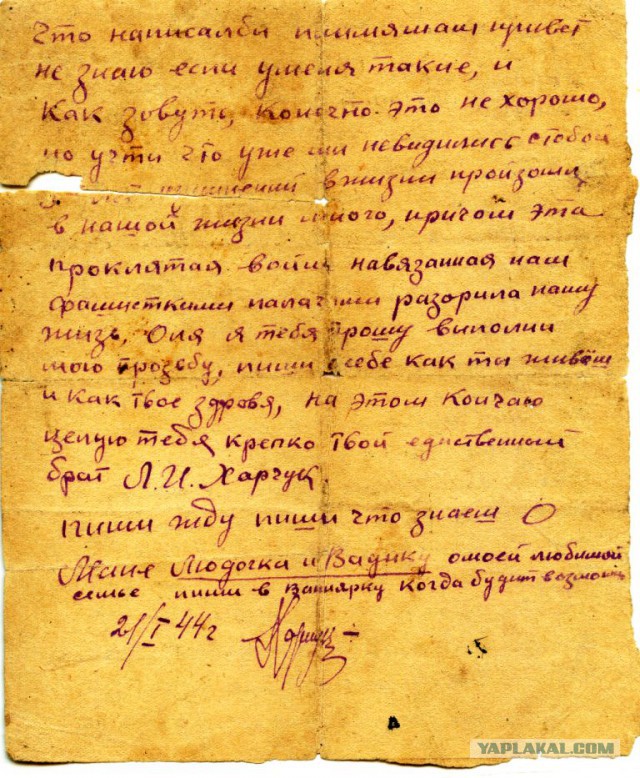 Что написалби племяшам привет
не знаю если умеля такие, и
Как зовуть, Конечно это не хорошо,
но учти что уже ми невидились стобой
лет вжизни пройзошл
в нашой жизни много, причом эта
проклятая война навязанная нам
фашисткими палачами разорила нашу
жизь, Оля я тебя прошу виполни
мою прозьбу, пиши о себе как ти живёш
и как твое здровя, на этом Кончаю
целую тебя крепко твой едиственный
брат Л.И. Харчук
пиши жду пиши что знаеш О
Мане Людочка и Вадику омоей любимой
семье пиши в вапнярку когда будит возможн
21/I 44г
YAPLAKAL.COM